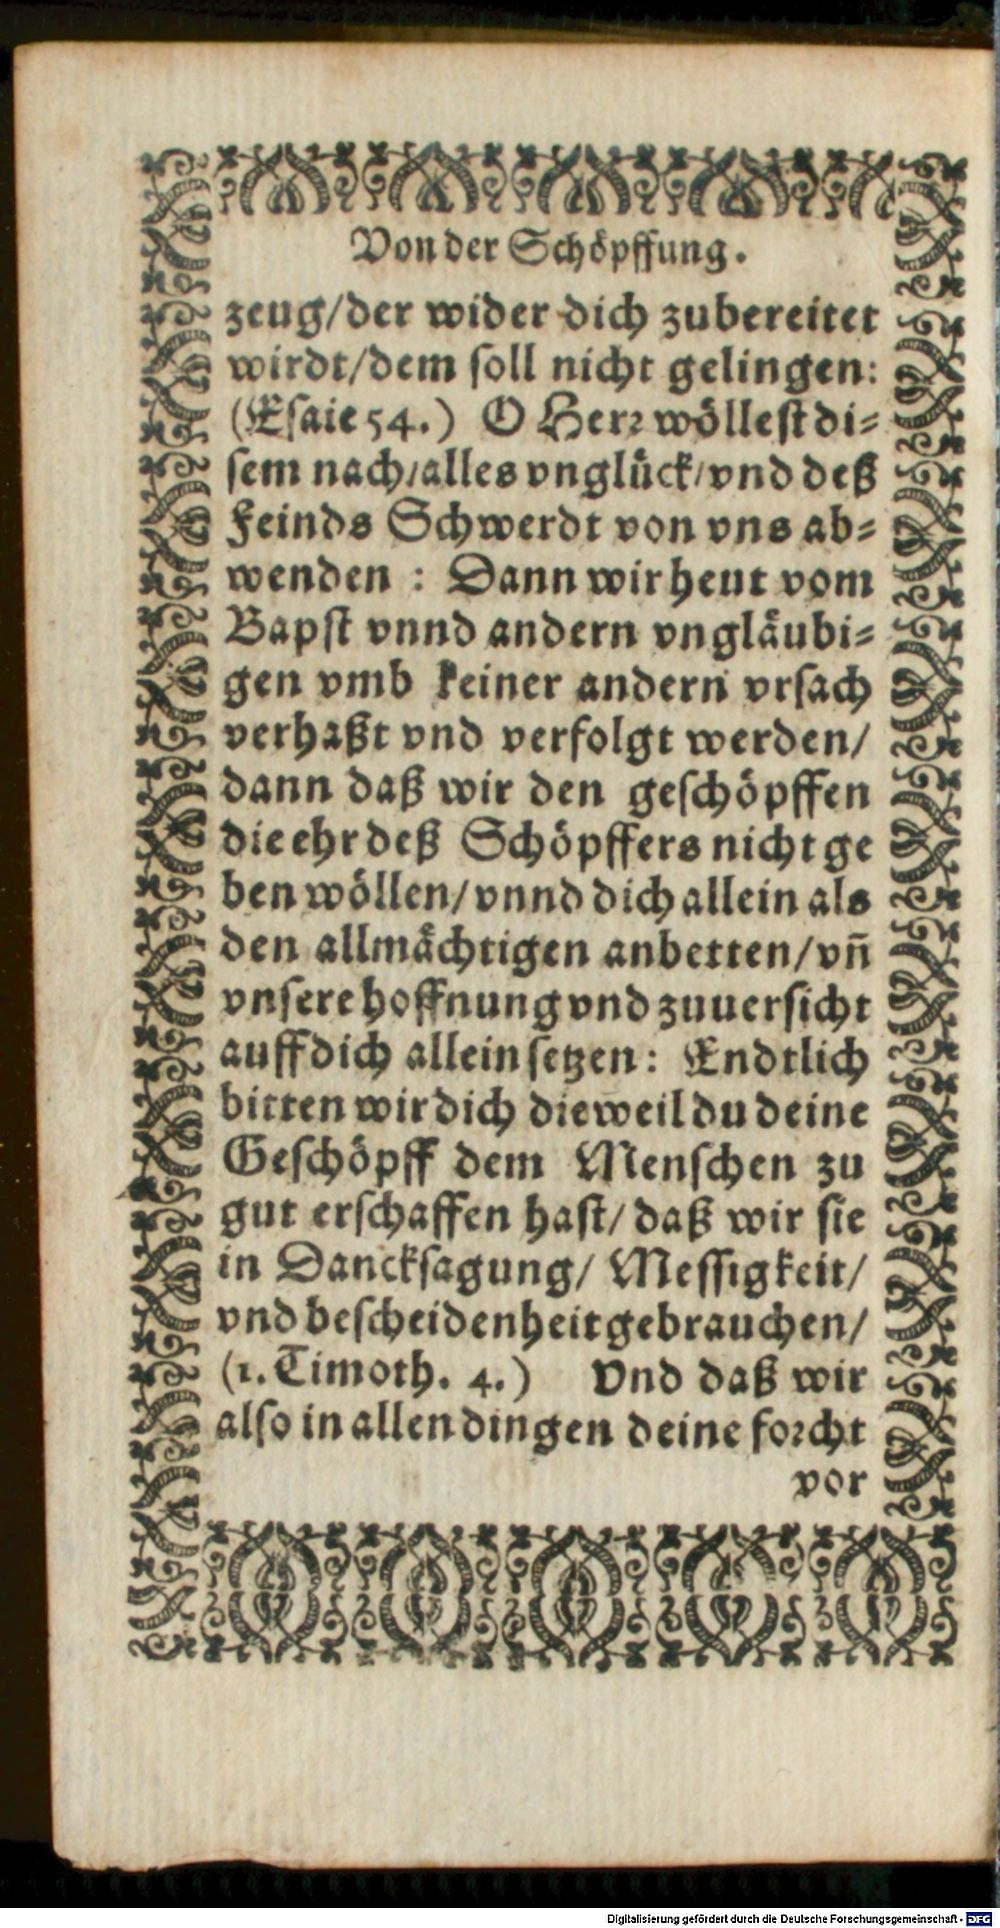 Von der Schöpffung.
zeug/der wider dich zubereitet
wirdt/dem soll nicht gelingen:
(Esaie 54.) O Herr wöllest di=
sem nach/alles vnglück/vnd deß
Feinds Schwerdt von vns ab=
wenden : Dann wir heut vom
Bapst vnnd andern vngläubi=
gen vmb keiner andern vrsach
verhaßt vnd verfolgt werden/
dann daß wir den geschöpffen
die ehr deß Schöpffers nicht ge
ben wöllen/vnnd dich allein als
den allmächtigen anbetten/vn̄
vnsere hoffnung vnd zuuersicht
auff dich allein setzen: Endtlich
bitten wir dich dieweil du deine
Geschöpff dem Menschen zu
gut erschaffen hast/ daß wir sie
in Dancksagung/ Messigkeit/
vnd bescheidenheit gebrauchen/
(1. Timoth. 4.) Vnd daß wir
also in allen dingen deine forcht
vor
Digitalisierung gefördert durch die Deutsche Forschungsgemeinschaft - DFG